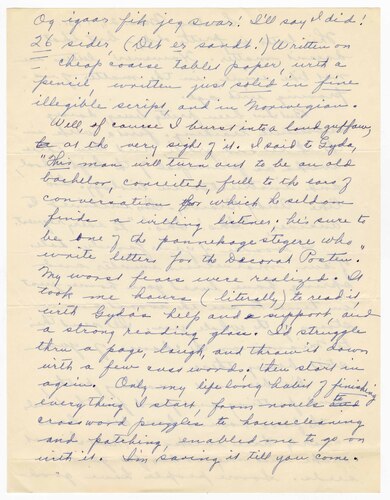 Og igaar fik jeg svar! I'll say I did!
26 sider. (Det er sandt!) Written on
cheap coarse tablet paper, with a
pencil, written just solid in fine
illegible script, and in Norwegian.
Well, of course I burst into a loud guffaw
at the very sight of it. I said to Gyda,
"This man will turn out to be an old
bachelor, conceited, full to the ears of
conversation for which he seldom
finds a willing listener; he's sure to
be one of the pannekagestegere who
write letters for the Decorah Posten."
My worst fears were realized. It
took me hours (literally) to read it
with Gyda's help and support, and
a strong reading glass. I'd struggle
thru a page, laugh, and throw it down
with a few cuss words, then start in
again. Only my life long habit of finishing
everything I start, from novels to
crossword puzzles to housecleaning
and patching, enabled me to go on
with it. I'm saving it till you come.